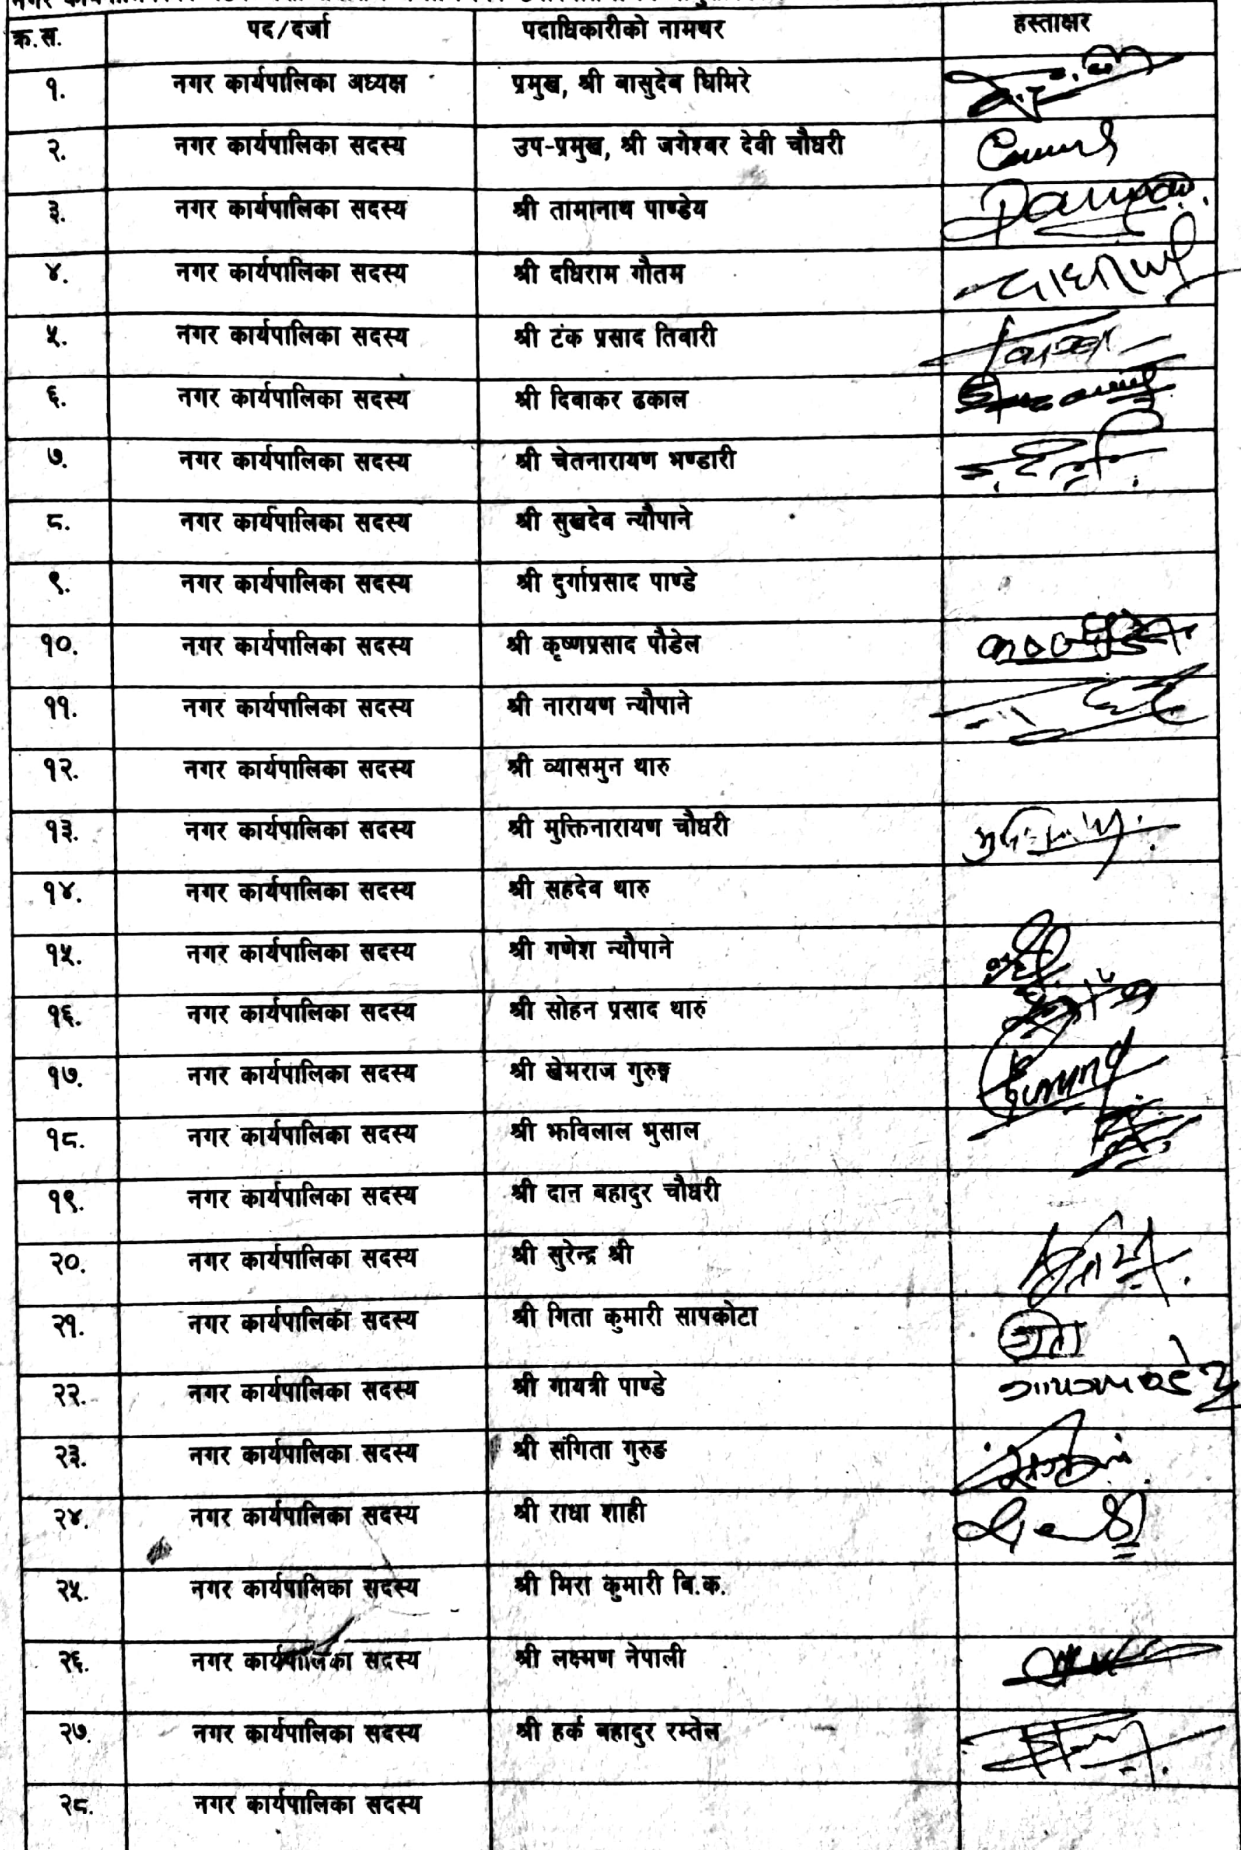 क्र.स. पद/दर्जा पदाधिकारीको नामथर हस्ताक्षर
१. नगर कार्यपालिका अध्यक्ष प्रमुख, श्री बासुदेव घिमिरे
२. नगर कार्यपालिका सदस्य उप-प्रमुख, श्री जगेश्वर देवी चौधरी
३. नगर कार्यपालिका सदस्य श्री तामानाथ पाण्डेय
४. नगर कार्यपालिका सदस्य श्री दधिराम गौतम
५. नगर कार्यपालिका सदस्य श्री टंक प्रसाद तिवारी
६. नगर कार्यपालिका सदस्य श्री दिवाकर ढकाल
७. नगर कार्यपालिका सदस्य श्री चेतनारायण भण्डारी
८. नगर कार्यपालिका सदस्य श्री सुखदेव न्यौपाने
९. नगर कार्यपालिका सदस्य श्री दुर्गाप्रसाद पाण्डे
१०. नगर कार्यपालिका सदस्य श्री कृष्णप्रसाद पौडेल
११. नगर कार्यपालिका सदस्य श्री नारायण न्यौपाने
१२. नगर कार्यपालिका सदस्य श्री व्यासमुन थारु
१३. नगर कार्यपालिका सदस्य श्री मुक्तिनारायण चौधरी
१४. नगर कार्यपालिका सदस्य श्री सहदेव थारु
१५. नगर कार्यपालिका सदस्य श्री गणेश न्यौपाने
१६. नगर कार्यपालिका सदस्य श्री सोहन प्रसाद थारु
१७. नगर कार्यपालिका सदस्य श्री खेमराज गुरुङ्ग
१८. नगर कार्यपालिका सदस्य श्री झविलाल भुसाल
१९. नगर कार्यपालिका सदस्य श्री दान बहादुर चौधरी
२०. नगर कार्यपालिका सदस्य श्री सुरेन्द्र श्री
२१. नगर कार्यपालिका सदस्य श्री गिता कुमारी सापकोटा गीता
२२. नगर कार्यपालिका सदस्य श्री गायत्री पाण्डे
२३. नगर कार्यपालिका सदस्य श्री संगिता गुरुङ
२४. नगर कार्यपालिका सदस्य श्री राधा शाही
२५. नगर कार्यपालिका सदस्य श्री मिरा कुमारी बि.क.
२६. नगर कार्यपालिका सदस्य श्री लक्ष्मण नेपाली
२७. नगर कार्यपालिका सदस्य श्री हर्क बहादुर रम्तेल
२८. नगर कार्यपालिका सदस्य